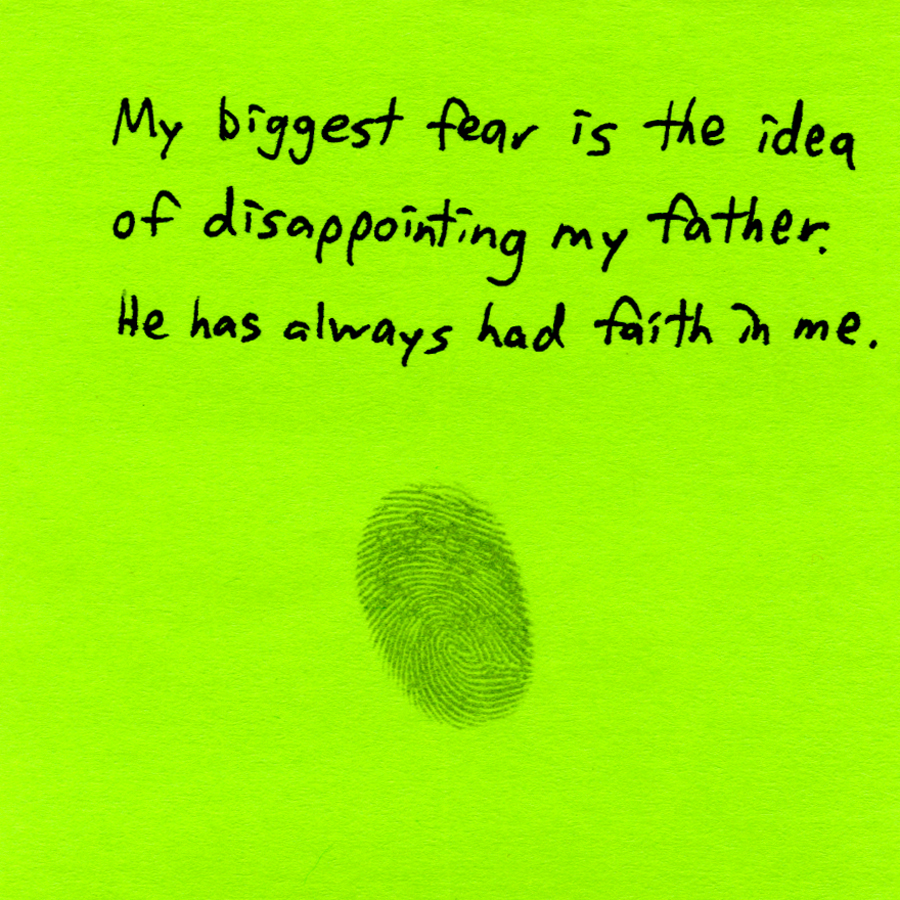 My biggest fear is the idea
of disappointing my father.
He has always had faith in me.